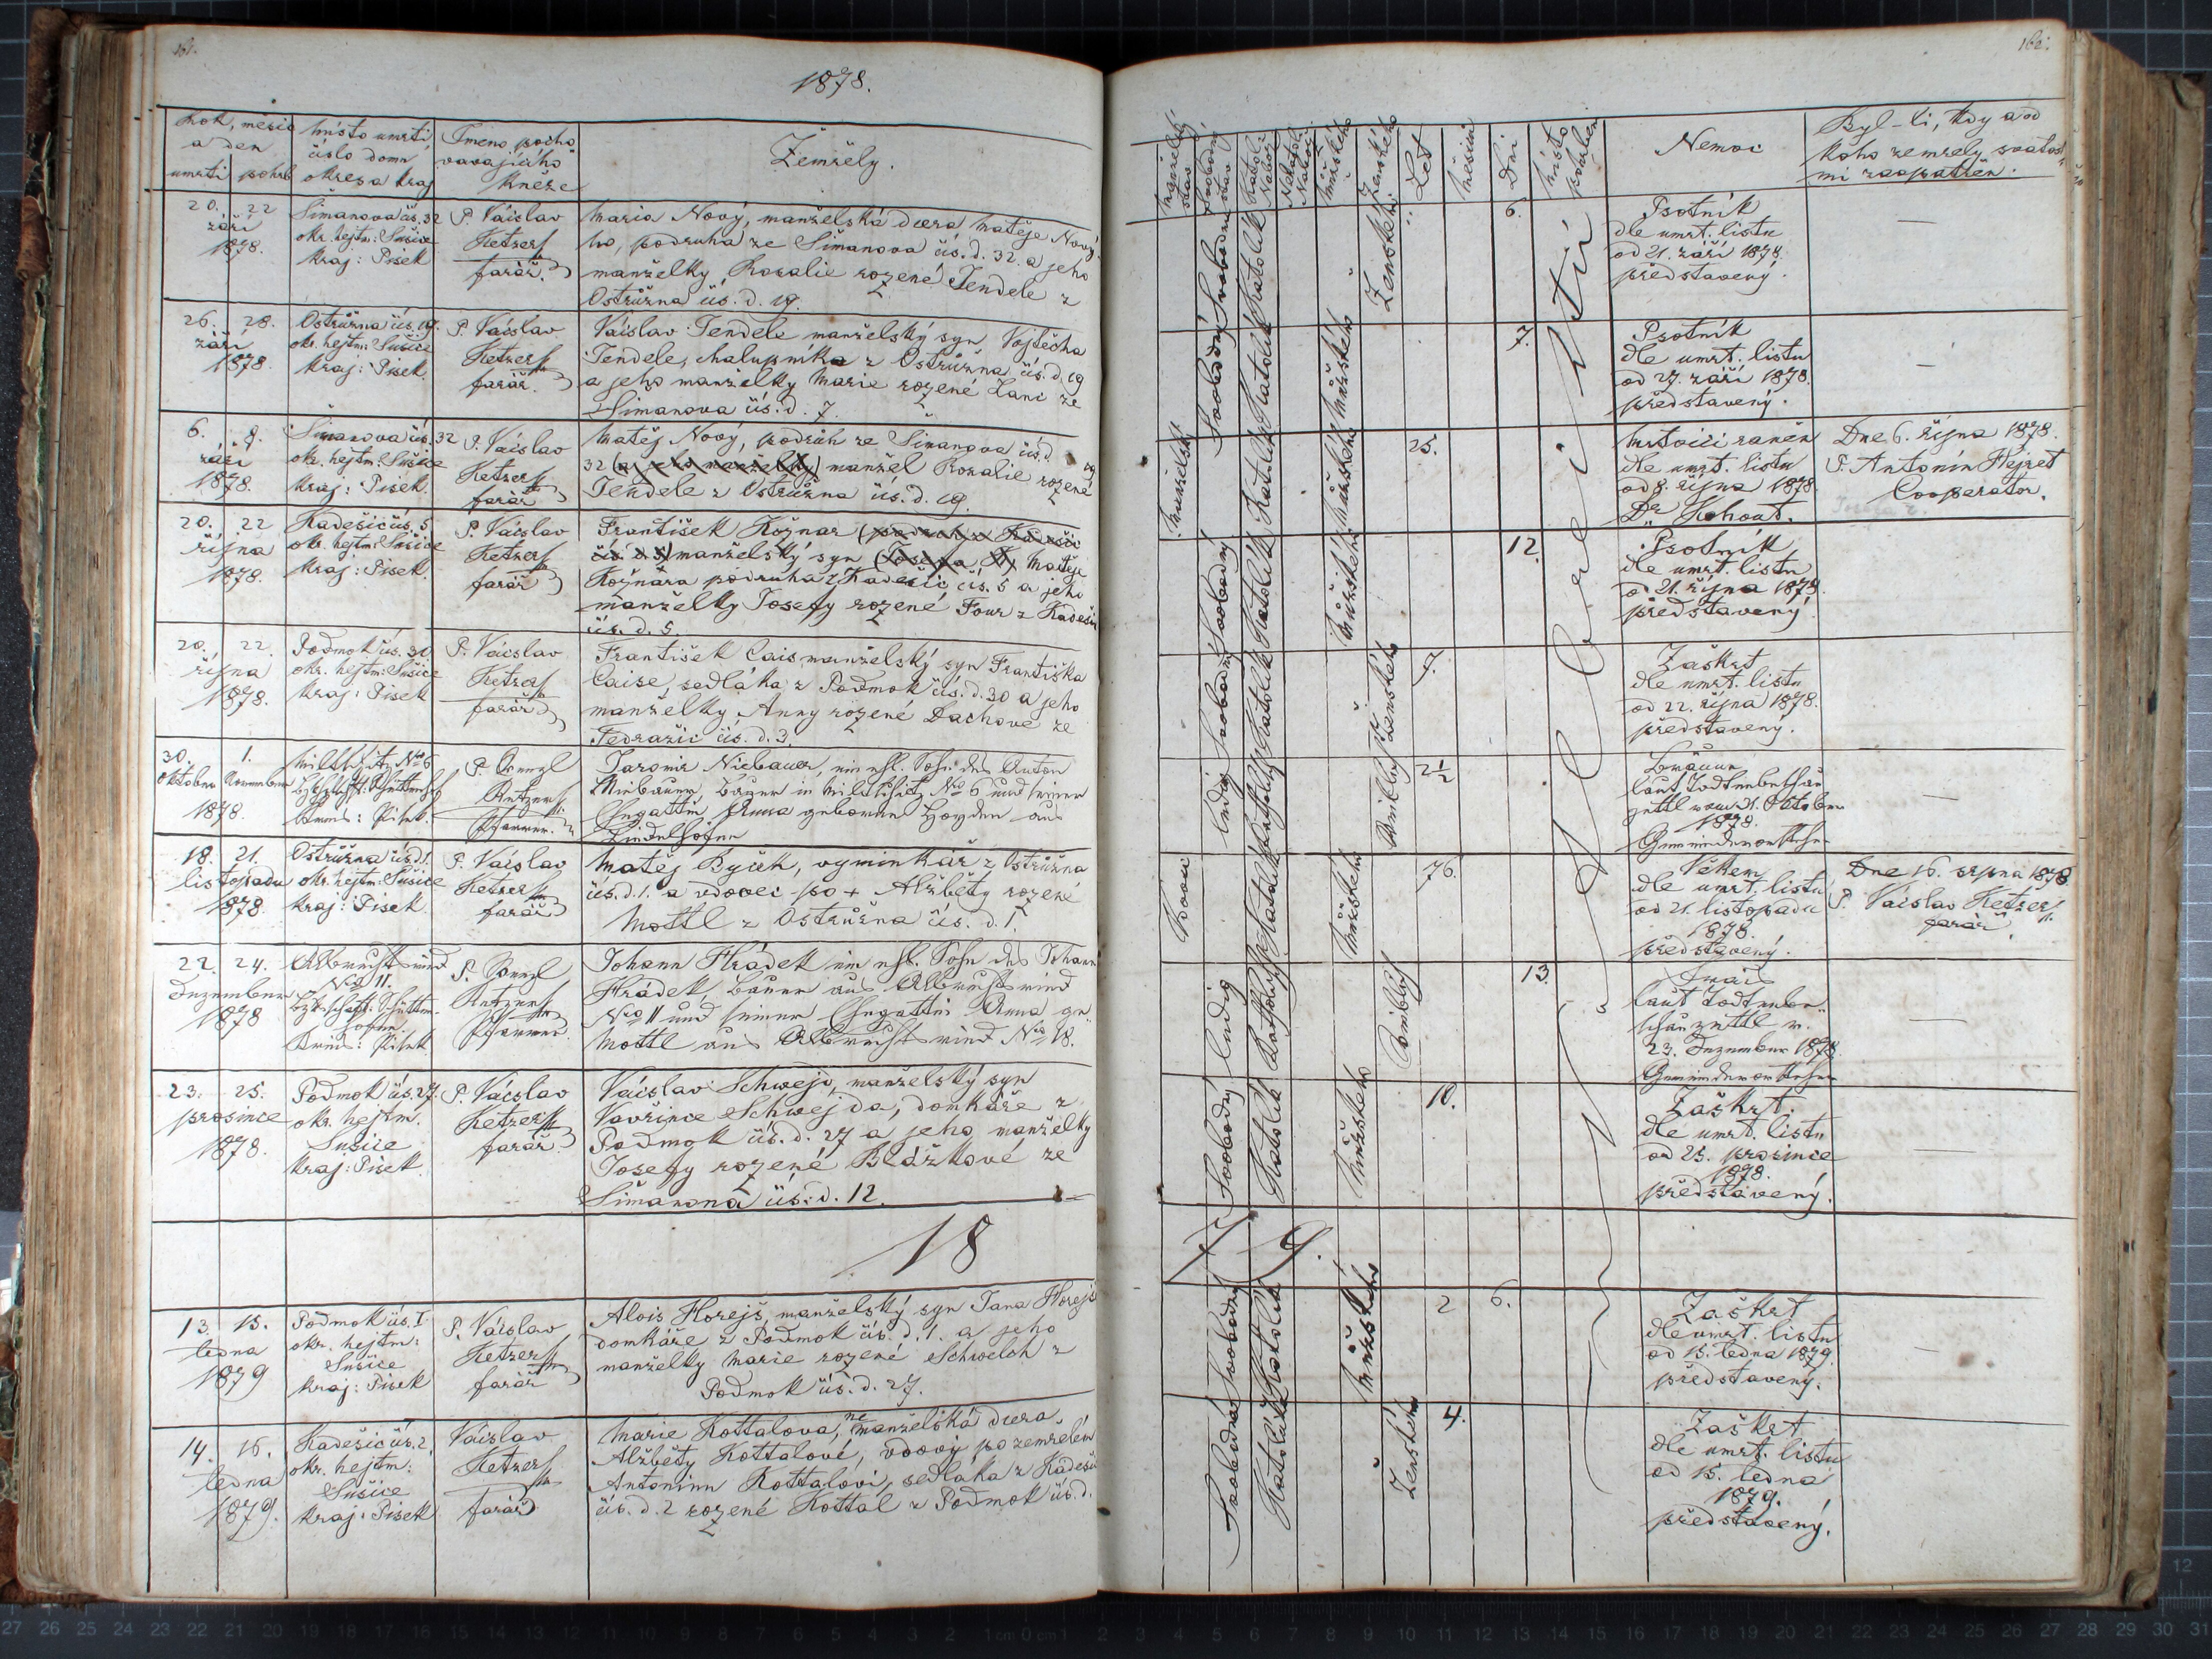 161.
1878.
Rok, měsíc
a den
umrtí
pohřb
Místo umrtí
číslo domu
okres a kraj
Jmeno pocho
vavajícího
Kněze
Zemřely.
20. 22
září
1878.
Šimanova čís. 32
okr. hejtm: Sušice
Kraj: Písek
P. Václav
Ketzer
farář.
Maria Nový, manželská dcera Matěje Nový
ho, podruha ze Šimanova čís. d. 32. a jeho
manželky Rozalie rozené Jendele z
Ostružna čís. d. 19.
26. 28.
září
1878.
Ostružna čís. 19.
okr. hejtm: Sušice
Kraj: Písek.
P. Václav
Ketzer
farář.
Václav Jendele manželský syn Vojtěcha
Jendele, chalupníka z Ostružna čís. d. 19
a jeho manželky Marie rozené Lanc ze
Šimanova čís. d. 7.
6. 9.
září
1878.
Šimanova čís. 32
okr. hejtm: Sušice
Kraj: Písek.
P. Václav
Ketzer
farář
Matěj Nový, podruh ze Šimanova čís. d.
32 (a jeho manželky) manžel Rozalie rozené
Jendele z Ostružna čís. d. 19.
20. 22
října
1878.
Kadešic čís. 5
okr. hejtm: Sušice
Kraj: Písek.
P. Václav
Ketzer
farář
František Kožnar (podruh z Kadešic
čís. d. 5) manželský syn (Josefa K) Matěje
Kožnára podruha z Kadešic čís. 5 a jeho
manželky Josefy rozené Four z Kadešic
čís. d. 5.
20. 22.
října
1878.
Podmok čís. 30
okr. hejtm: Sušice
Kraj: Písek
P. Václav
Ketzer
farář
František Cais manželský syn Františka
Caise, sedláka z Podmok čís. d. 30 a jeho
manželky Anny rozené Dachové ze
Jedražic čís. d. 3.
30. 1.
Oktober November
1878.
Millčitz No 6
Kreis: Pisek.
P. Wenzl
Ketzer
Pfarrer.
Jaromir Niebauer, ein ehl. Sohn des Anton
Niebauer, Bauer in No 6 und seiner
Ehegattin Anna geborene aus
18. 21.
listopadu
1878.
Ostružna čís. d. 1.
okr. hejtm: Sušice
Kraj: Písek.
P. Václav
Ketzer
farář
Matěj Byček, vyminkář z Ostružna
čís. d. 1. a vdovec po + Alžběty rozené
Mottl z Ostružna čís. d. 1.
22. 24.
Dezember
1878
Albrechtsried
No 11.
Kreis: Pisek.
P. Wenzl
Ketzer
Pfarrer
Johann Hrádek ein ehl. Sohn des Johann
Hrádek, Bauer aus Albrechtsried
No 11 und seiner Ehegattin Anna ge.
Mottl aus Albrechtsried No 18.
23. 25.
prosince
1878.
Podmok čís. 27.
okr. hejtm.
Sušice
Kraj: Písek.
P. Václav
Ketzer
farář
Václav Schwejd, manželský syn
Vavřince Schwejda, domkáře z
Podmok čís. d. 27 a jeho manželky
Josefy rozené Blážkové ze
Šimanova čís. d. 12.
18
13. 15.
ledna
1879
Podmok čís. 1
okr. hejtm:
Sušice
Kraj: Písek
P. Václav
Ketzer
farář
Alois Horejš, manželský syn Jana Horejš
domkáře z Podmok čís. d. 1. a jeho
manželky Marie rozené Schwelch z
Podmok čís. d. 27.
14. 16.
ledna
1879.
Kadešic čís. 2.
okr. hejtm:
Sušice
Kraj: Písek
Václav
Ketzer
farář
Marie Kottalova, nemanželská dcera
Alžběty Kottalové, vdovy po zemřelém
Antoninu Kottalovi, sedláka z Kadešic
čís. d. 2 rozené Kottal z Podmok čís. d.
162.
Manželský
stav
Svobodný
stav
Katol.
Nabož.
Nekatol.
Nabož.
Mužského
Ženského
Let
Měsíců
Dní
Místo
pohřben
Nemoc
Byl-li, kdy a od
koho zemřely svatost
mi zaopatřen.
Svobodná
Katolik
Ženského
6.
Psotník
dle umrt. listu
od 21. září 1878.
představený.
—
Svobodný
Katolik
Mužského
7.
Psotník
dle umrt. listu
od 27. září 1878.
představený.
—
Manželský
Katolik
Mužského
25.
Mrtvicí raněn
dle umrt. listu
od 8. října 1878
Dr Kohout.
Dne 6. října 1878.
P. Antonín Hejret
Cooperator.
Svobodný
Katolik
Mužského
12.
Psotník
dle umrt. listu
od 21. října 1878.
představený
Svobodný
Katolik
Ženského
7.
Zaškrt
dle umrt. listu
od 22. října 1878.
představený.
ledig
Katholisch
Weiblich
2 1/2
Bräune
laut Todtenbeschau
zettl vom 31. Oktober
1878.
Gemeindevorsteher
—
Vdovec
Katolik
Mužského
76.
Věkem
dle umrt. listu
od 21. listopadu
1878.
představený.
Dne 16. srpna 1878
P. Václav Ketzer
farář
ledig
Katholisch
Weiblich
13.
Frais
laut Todtenbe-
schauzettl v.
23. Dezember 1878.
Gemeindevorsteher
—
Svobodný
Katolik
Mužského
10.
Zaškrt.
dle umrt. listu
od 25. prosince
1878.
představený.
—
17
9.
Svobodný
Katolik
Mužského
2 6.
Zaškrt
dle umrt. listu
od 15. ledna 1879.
představený.
—
Svobodná
Katolička
Ženského
4.
Zaškrt
dle umrt. listu
od 15. ledna
1879.
představený.